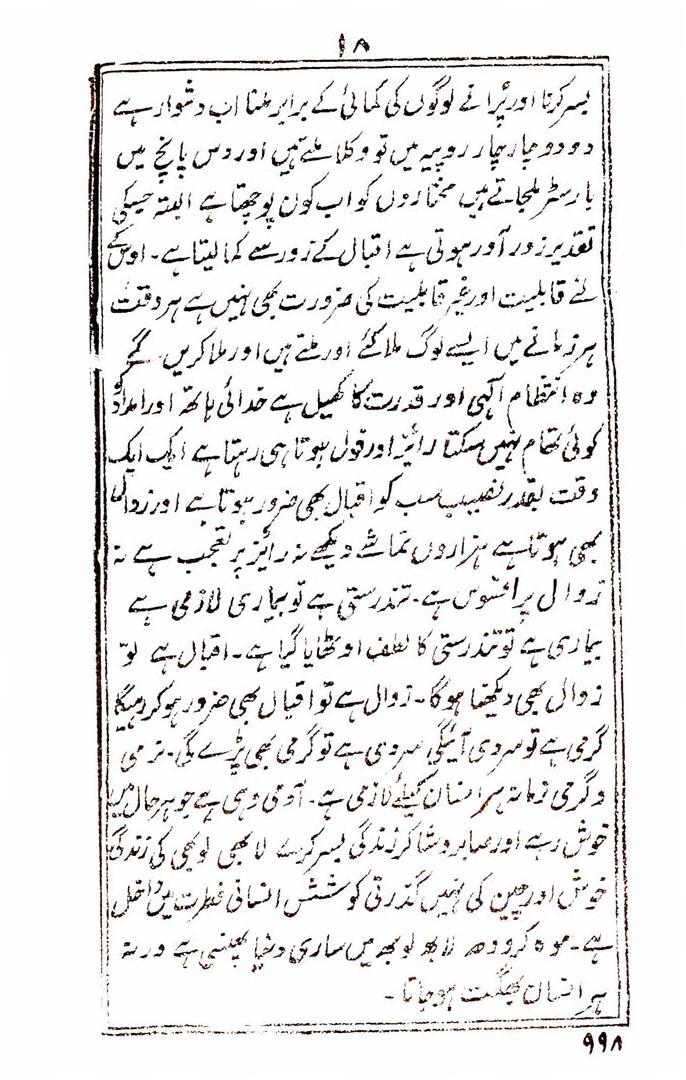 ۱۸
بسر کرنا اور پرانے لوگوں کی کمائی کے برابر ملنا اب دشوار ہے
دو دو چار چار روپیہ میں تو وکلا ملتے ہیں اور دس پانچ میں
بارسٹر ملجاتے ہیں مختاروں کو اب کون پوچھتا ہے البتہ جسکی
تقدیر زور آور ہوتی ہے اقبال کے زور سے کما لیتا ہے۔ اوسکے
لئے قابلیت اور غیر قابلیت کی ضرورت بھی نہیں ہے ہر وقت
ہر زمانے میں ایسے لوگ ملا کئے اور ملتے ہیں اور ملا کریں گے
وہ انتظام الہی اور قدرت کا کھیل ہے خدائی ہاتھ اور امداد کو
کوئی تھام نہیں سکتا رائز اور فول ہوتا ہی رہتا ہے ایک ایک
وقت بقدر نصیب سب کو اقبال بھی ضرور ہوتا ہے اور زوال
بھی ہوتا ہے ہزاروں تماشے دیکھے نہ رائز پر تعجب ہے نہ
زوال پر افسوس ہے۔ تندرستی ہے تو بیماری لازمی ہے
بیماری ہے تو تندرستی کا لطف اوٹھایا گیا ہے۔ اقبال ہے تو
زوال بھی دیکھنا ہوگا۔ زوال ہے تو اقبال بھی ضرور ہو کر رہیگا
گرمی ہے تو سردی آئیگی سردی ہے تو گرمی بھی پڑے گی۔ نرمی
و گرمی زمانہ ہر انسان کیلئے لازمی ہے۔ آدمی وہی ہے جو ہر حال میں
خوش رہے اور صابر و شاکر زندگی بسر کرے لابھی لوبھی کی زندگی
خوش اور چین کی نہیں گذرتی کوشش انسانی فطرت میں داخل
ہے۔ موہ کرودھ لابھ لوبھ میں ساری دنیا پھنسی ہے ورنہ
ہر انسان بھگت ہو جاتا۔
۹۹۸